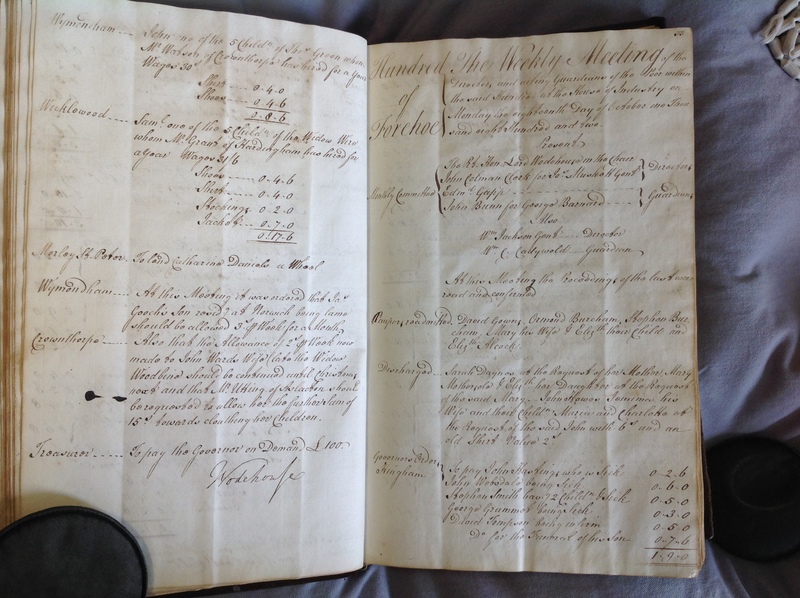 Wymondham — John one of the 5 Child.n of Tho.s Green whom
Mr. Watson of Crownthorpe has hired for a Year
Wages 30/
Shirt — 0-4-0
Shoes — 0-4-6
0-8-6
Wicklewood — Sam.l one of the 5 Child.n of the Widow
whom Mr. Grant of Hardingham has hired for
a Year Wages 31/6
Shoes — 0-4-6
Shirt — 0-4-0
Stockings — 0-2-0
Jacket — 0-7-0
0.17-6
Morley St. Peter — To lend Catharine Daniels a Wheel
Wymondham — At this Meeting it was ordered that Ja.s
Gooch's Son resid.g at Norwich being lame
should be allowed 3/ p.r Week for a Month
Crownthorpe — Also that the Allowance of 2/ p.r Week now
made to John Wards Wife (late the Widow
Woodbine should be continued until Christmas
next and that Mr. Utting of Aslacton should
be requested to allow her the further Sum of
15s towards cloathing her Children.
Treasurer — To pay the Governor on Demand £100.
Wodehouse
32
Hundred of Forehoe
The Weekly Meeting of the
Directors and acting Guardians of the Poor within
the said Hundred at the House of Industry on
Monday the eighteenth Day of October one Thou
sand eight Hundred and two
Present
The R.t Hon. Lord Wodehouse in the Chair
John Colman Clerk for Jos. Muskett Gent } Directors
Weekly Committee
Edm.d Gapp
John Bunn for George Barnard — } Guardians
Also
Wm. Jackson Gent — Director
Wm. C. Calthrold — Guardian
At this Meeting the Proceedings of the last were
read and confirmed
Paupers readmitted David Gouna, Ormond Burcham, Stephen Bur
cham, Mary his Wife & Eliz.th their Child an
Eliz.th Alcock
Discharged — Sarah Dugnos at the Request of her Mother, Mary
Mothersole & Eliz.th her Daughter at the Request
of the said Mary, John Howes Jemima his
Wife and their Child.n Maria and Charlotte at
the Request of the said John with 6s and an
old Shirt Value 2s
Governors Order
Hingham
To pay John Hastings who is Sick 0-2-6
John Worsdale being Sick 0-6-0
Stephen Smith has 2 Child.n Sick 0-5-0
George Grummet being Sick 0-3-0
David Timpson being in 0-5-0
Do. for the Funeral of his Son 0-7-6
1-9-0